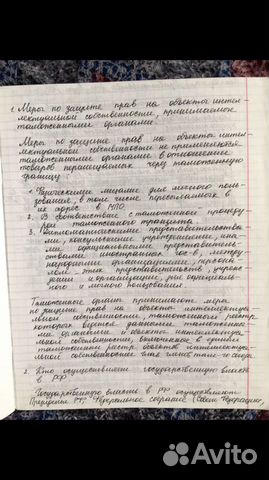 1. Меры по защите прав на объекты интел-
лектуальной собственности, принимаемые
таможенными органами.
Меры по защите прав на объекты интел-
лектуальной собственности не применяются
таможенными органами в отношении
товаров перемещаемых через таможенную
границу:
1. Физическими лицами для личного поль-
зования, в том числе пересылаемых в
их адрес в МПО
2. В соответствие с таможенной процеду-
рой таможенного транзита
3. Дипломатическими представительства-
ми, консульскими учреждениями,
ми официальными представитель-
ствами иностранных гос-в, между-
народными организациями, персона-
лом этих представительств, учреж-
дений и организаций, для официаль-
ного и личного пользования
Таможенные органы принимают меры
по защите прав на объекты интеллектуа-
льной собственности, таможенный реестр
которых ведется данными таможенны-
ми органами и объекты интеллектуа-
льной собственности, включенные в единый
таможенный реестр объектов интеллектуа-
льной собственности
2. Кто осуществляет государственную власть
в РФ
Государственную власть в РФ осуществляют
Президент РФ, Федеральное собрание (Совет Федерации,
Avito